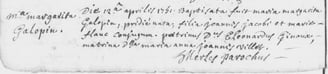 Ma margarita Galopin.
Die 12a aprilis 1761. Baptisata fuit maria margarita
Galopin, pridie nata, filia Joannis Jacobi et mariæ
conjugum. patrinus Ds Leonardus
matrina Dlla maria anna Joannis
parochus